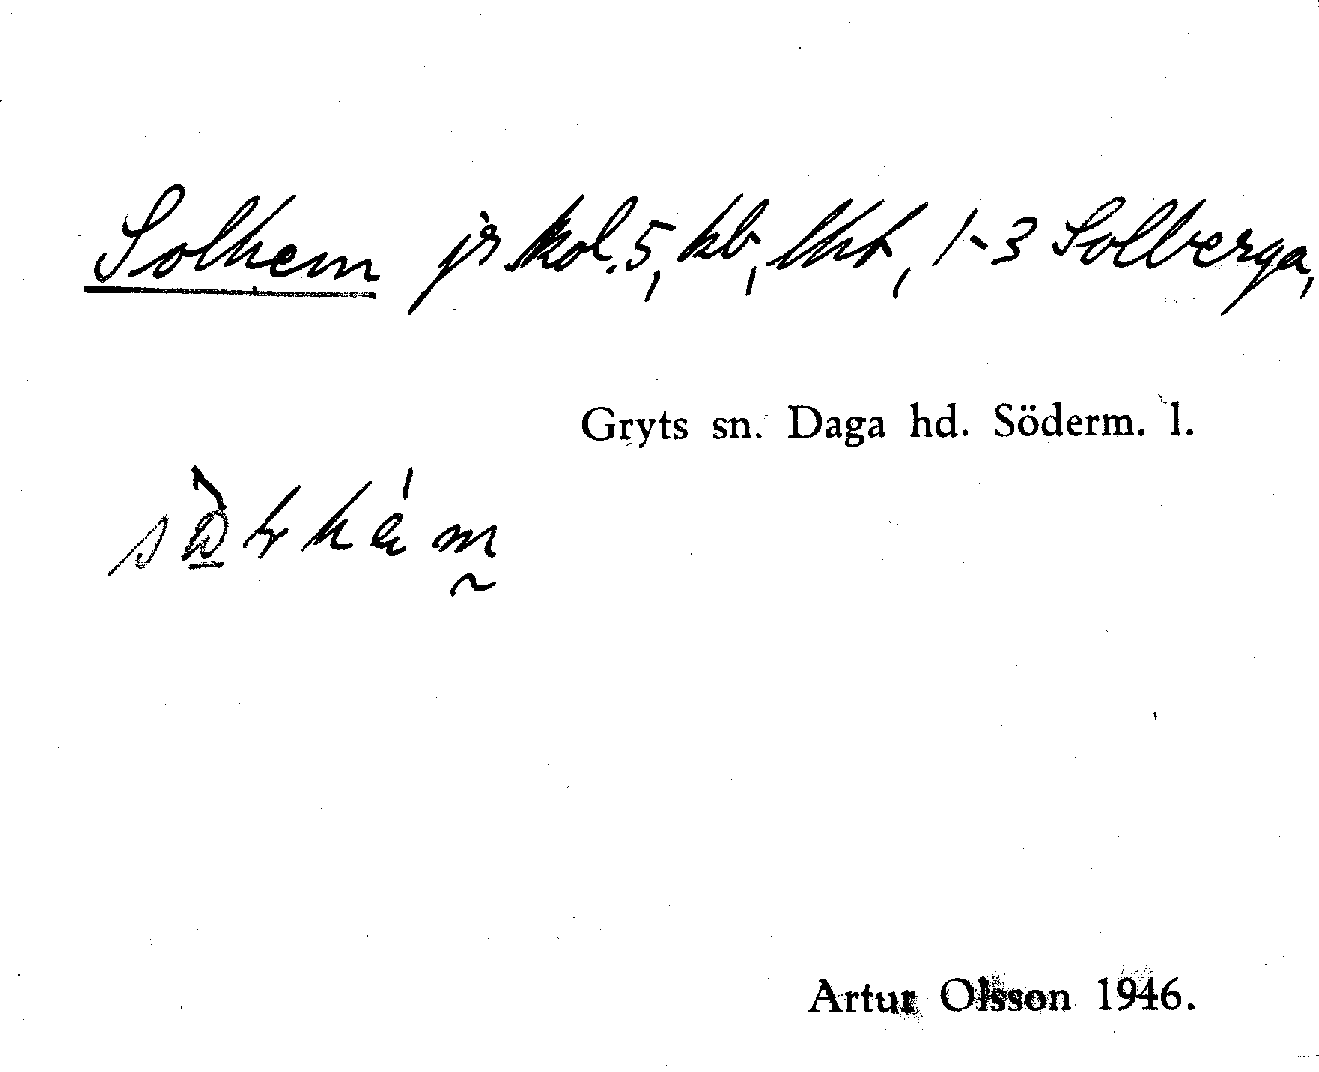 Solhem jr kol. 5, kb, lht, 1-3 Solberga,
Gryts sn. Daga hd. Söderm. l.
Artur Olsson 1946.